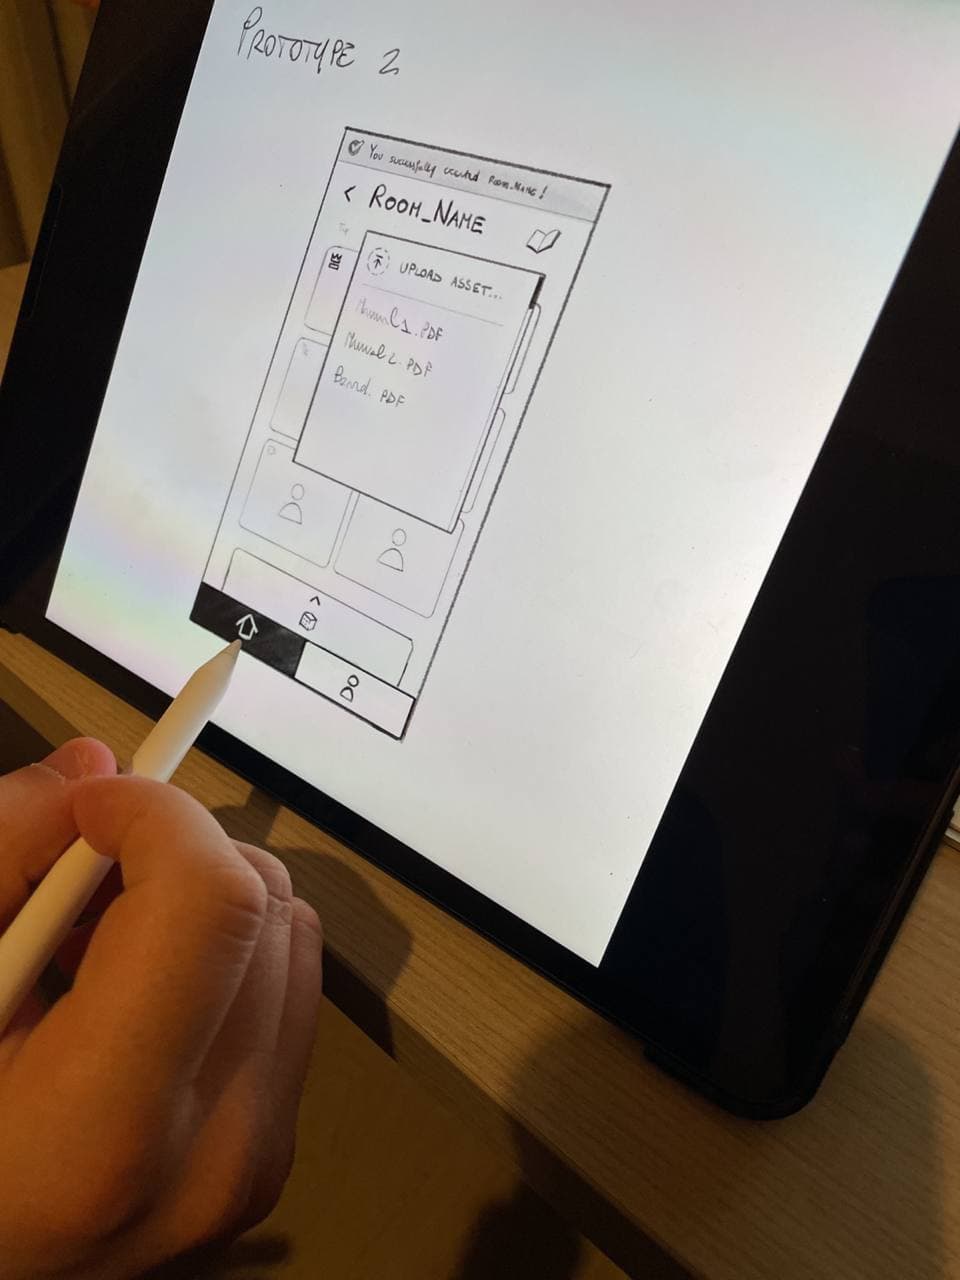 PROTOTYPE 2
You successfully created ROOM_NAME!
< ROOM_NAME
UPLOAD ASSET...
Manual1.PDF
Manual2.PDF
Board.PDF